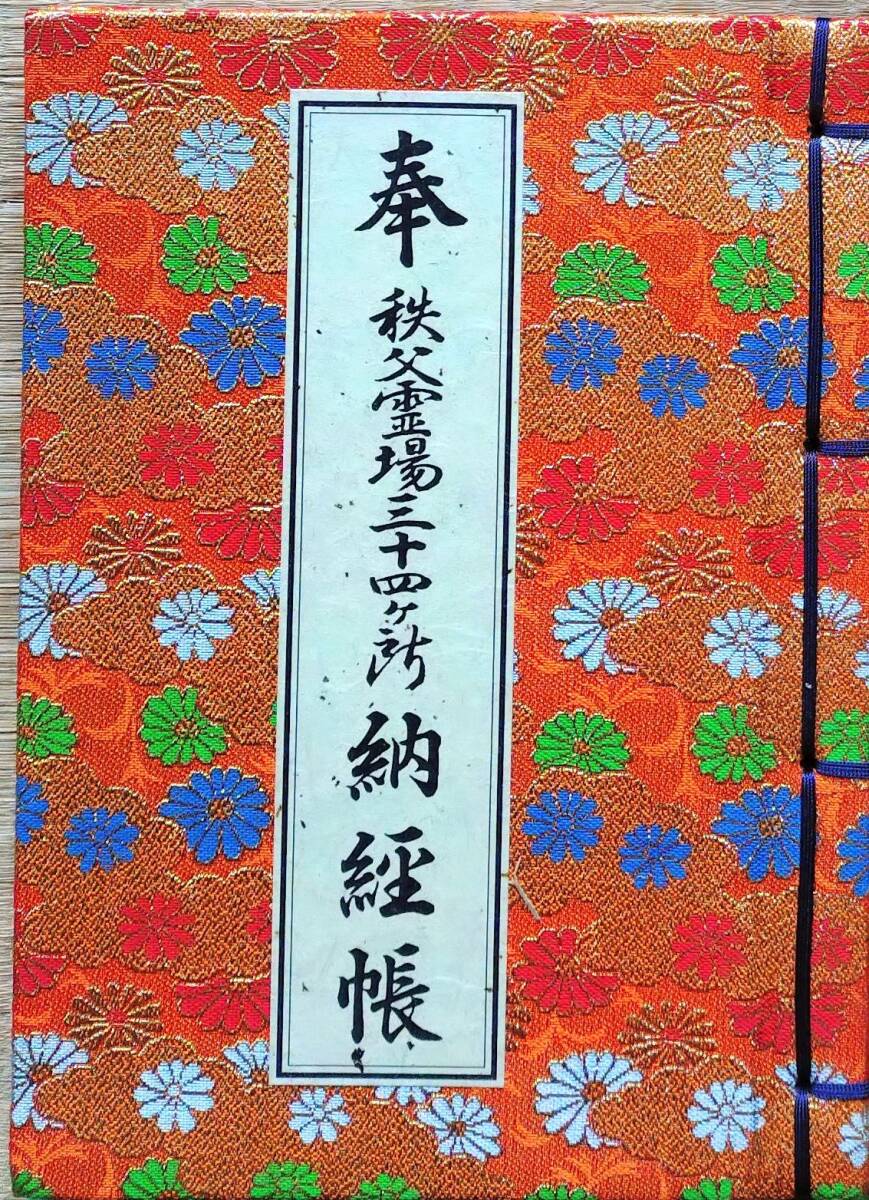 奉秩父霊場三十四ヶ所納經帳